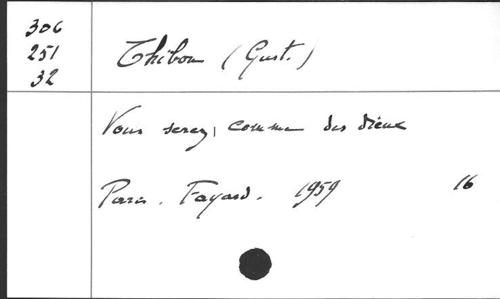 306
251
32
Thibon (Gust.)
Vous serez, comme des dieux
Paris. Fayard. 1959 16